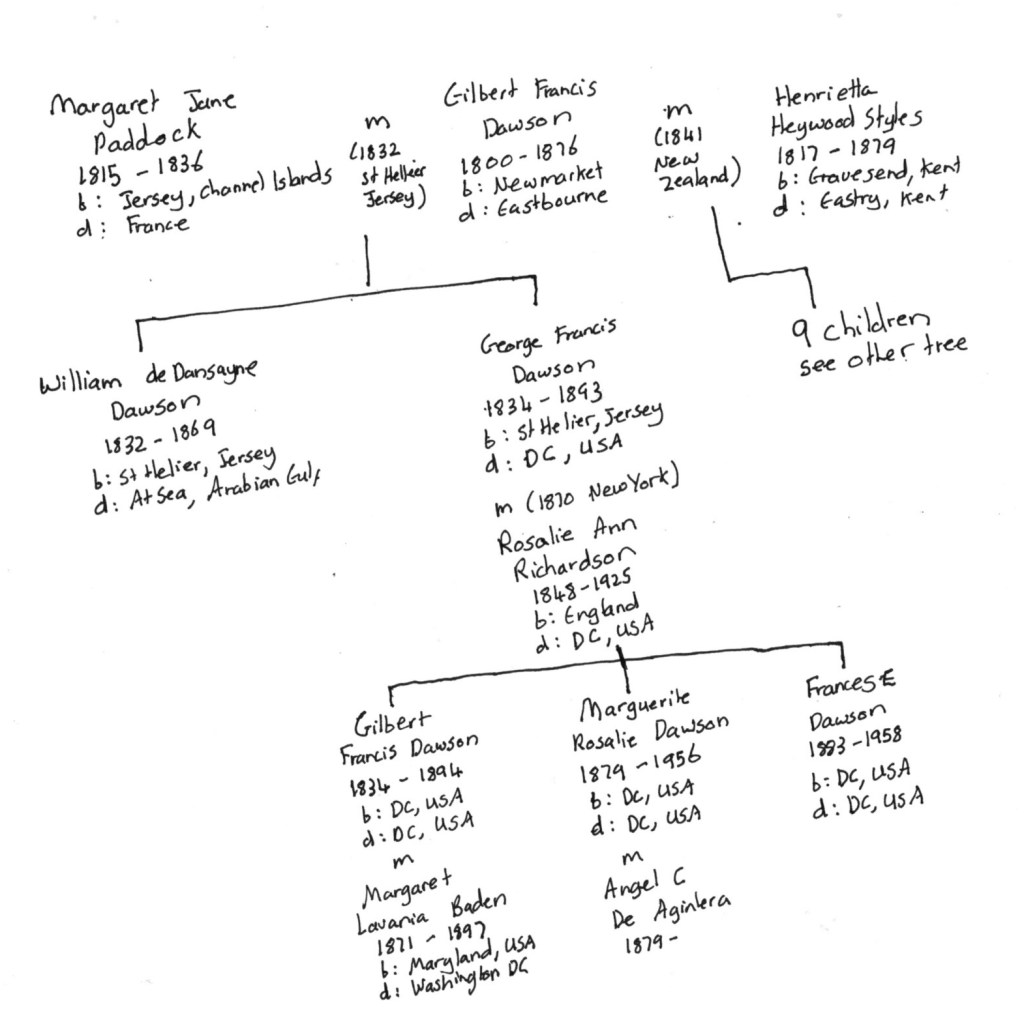 Margaret Jane
Paddock
1815 - 1836
b: Jersey, Channel Islands
d: France
m
(1832
St Hellier
Jersey)
Gilbert Francis
Dawson
1800 - 1876
b: Newmarket
d: Eastbourne
m
(1841
New
Zealand)
Henrietta
Heywood Styles
1817 - 1879
b: Gravesend, Kent
d: Eastry, Kent
William de Dansayne
Dawson
1832 - 1869
b: St Helier, Jersey
d: At Sea, Arabian Gulf
George Francis
Dawson
1834 - 1893
b: St Helier, Jersey
d: DC, USA
m (1870 New York)
Rosalie Ann
Richardson
1848 - 1925
b: England
d: DC, USA
9 children
see other tree
Gilbert
Francis Dawson
1834 - 1894
b: DC, USA
d: DC, USA
m
Margaret
Lavania Baden
1871 - 1897
b: Maryland, USA
d: Washington DC
Marguerite
Rosalie Dawson
1879 - 1956
b: DC, USA
d: DC, USA
m
Angel C
De Aginlera
1879 -
Frances E
Dawson
1883 - 1958
b: DC, USA
d: DC, USA